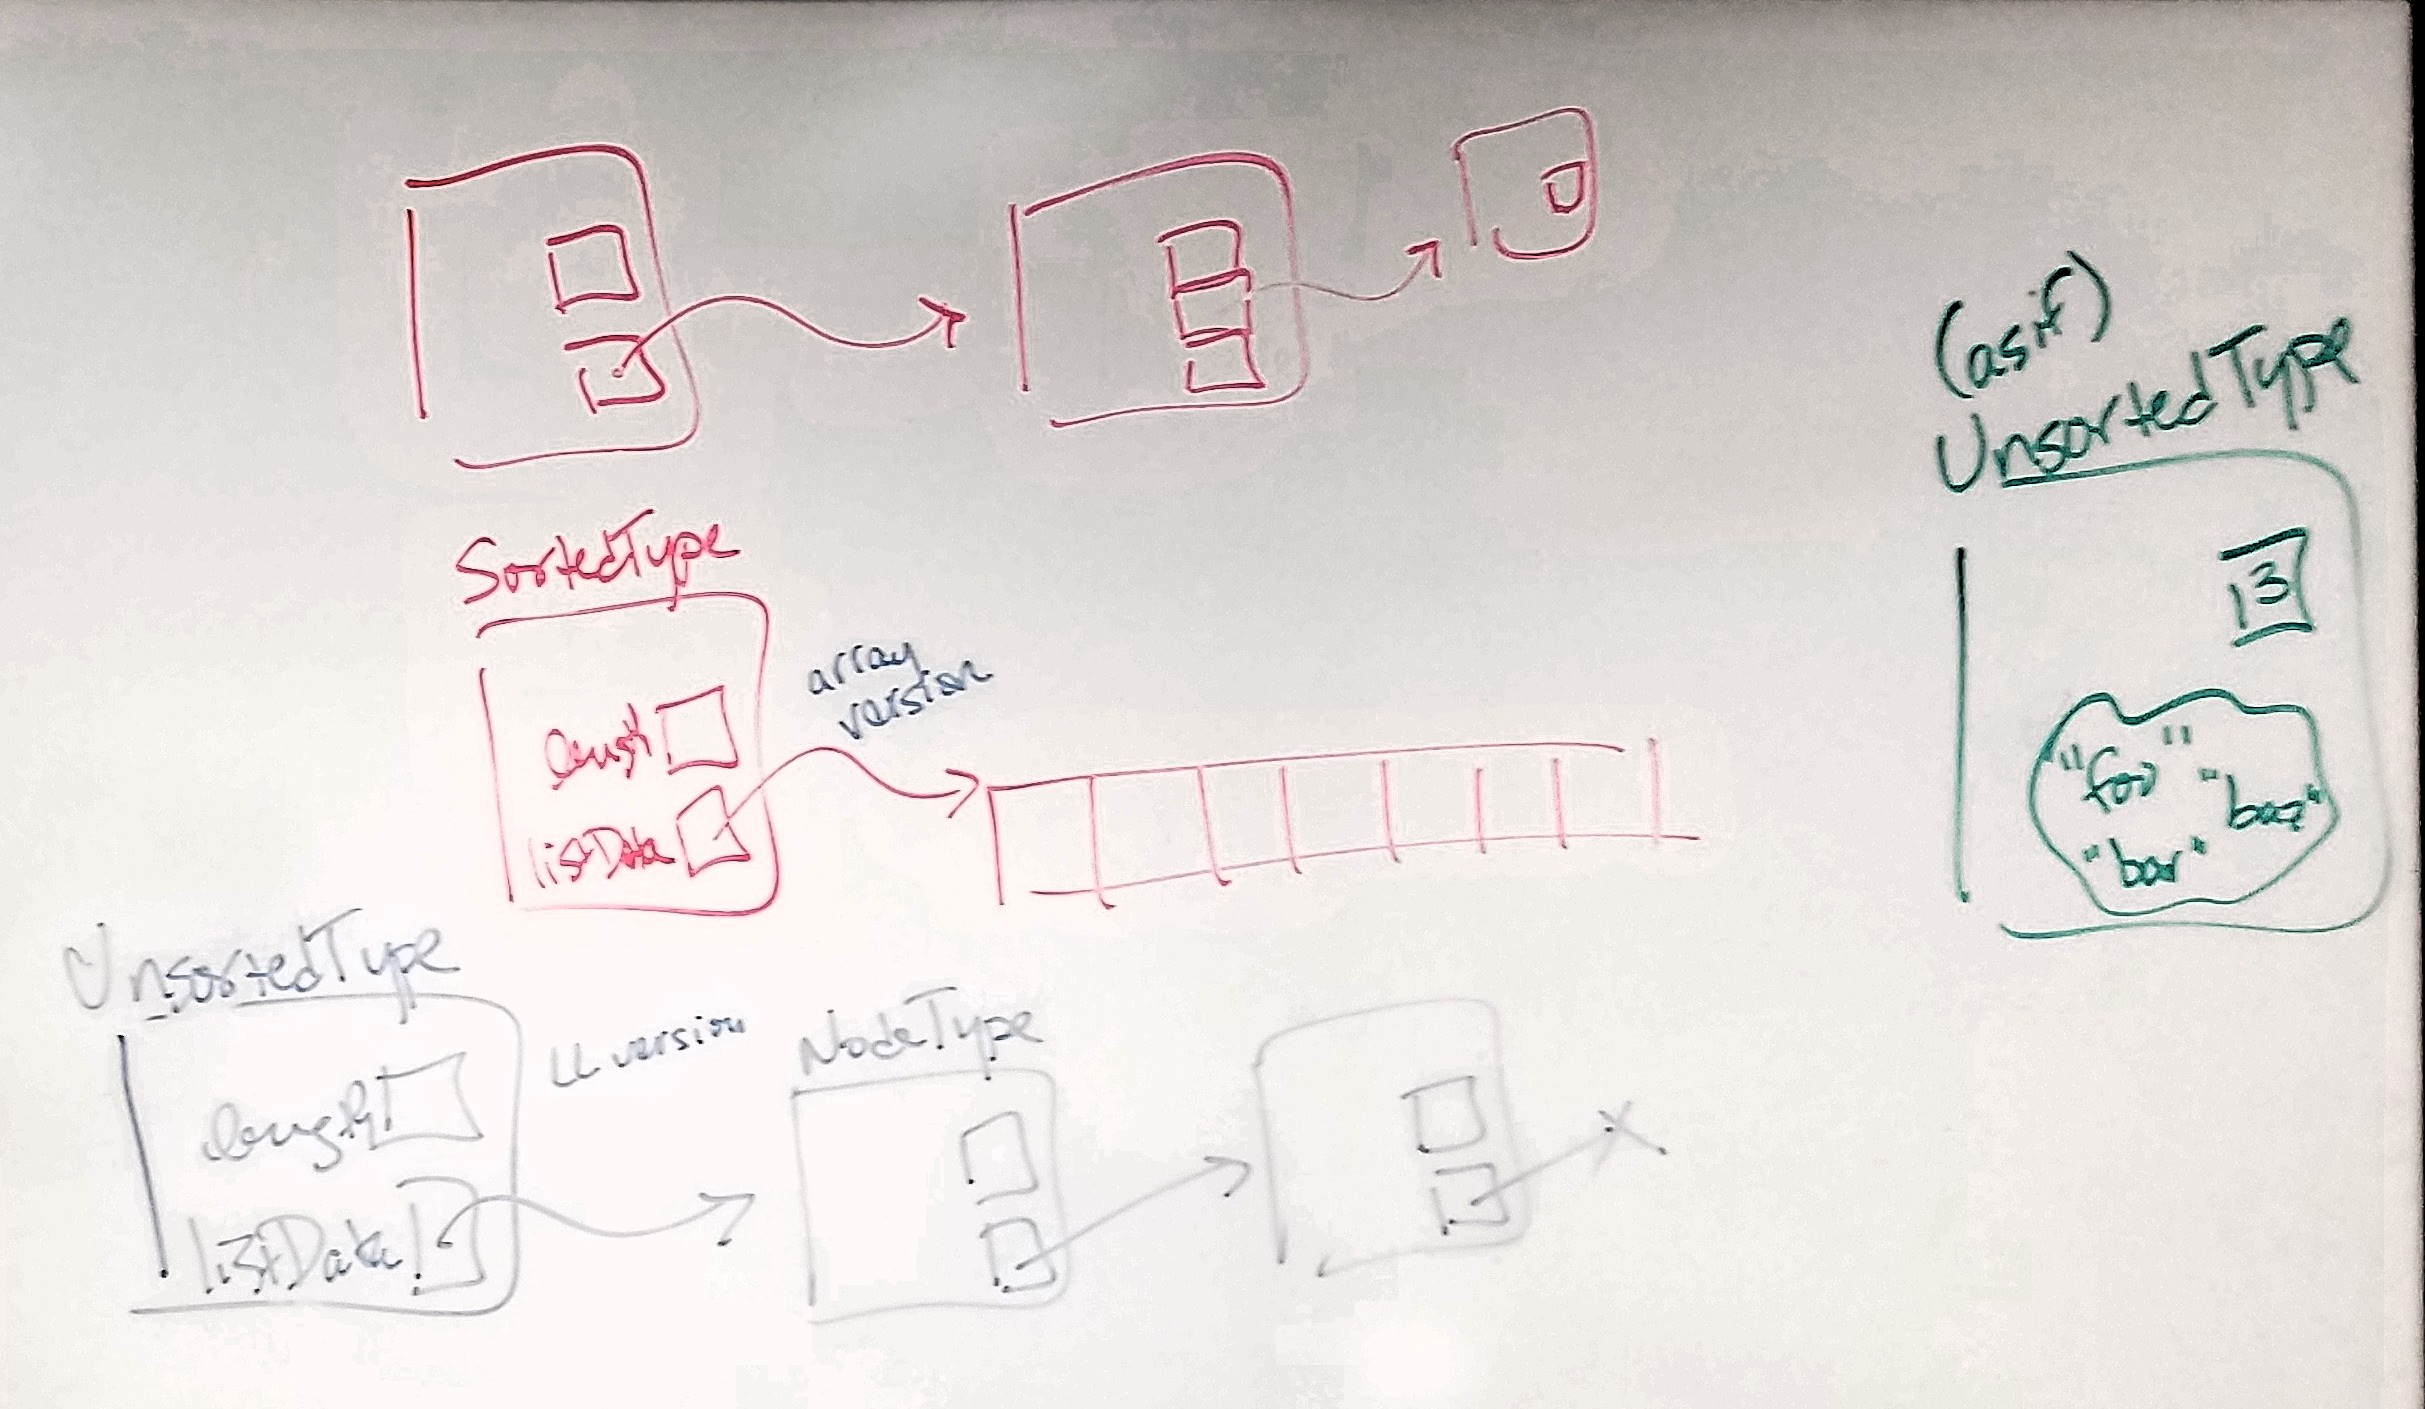 (asif)
UnsortedType
3
"foo"
"baz"
"bar"
SortedType
length
listData
array
version
UnsortedType
length
listData
LL version
NodeType